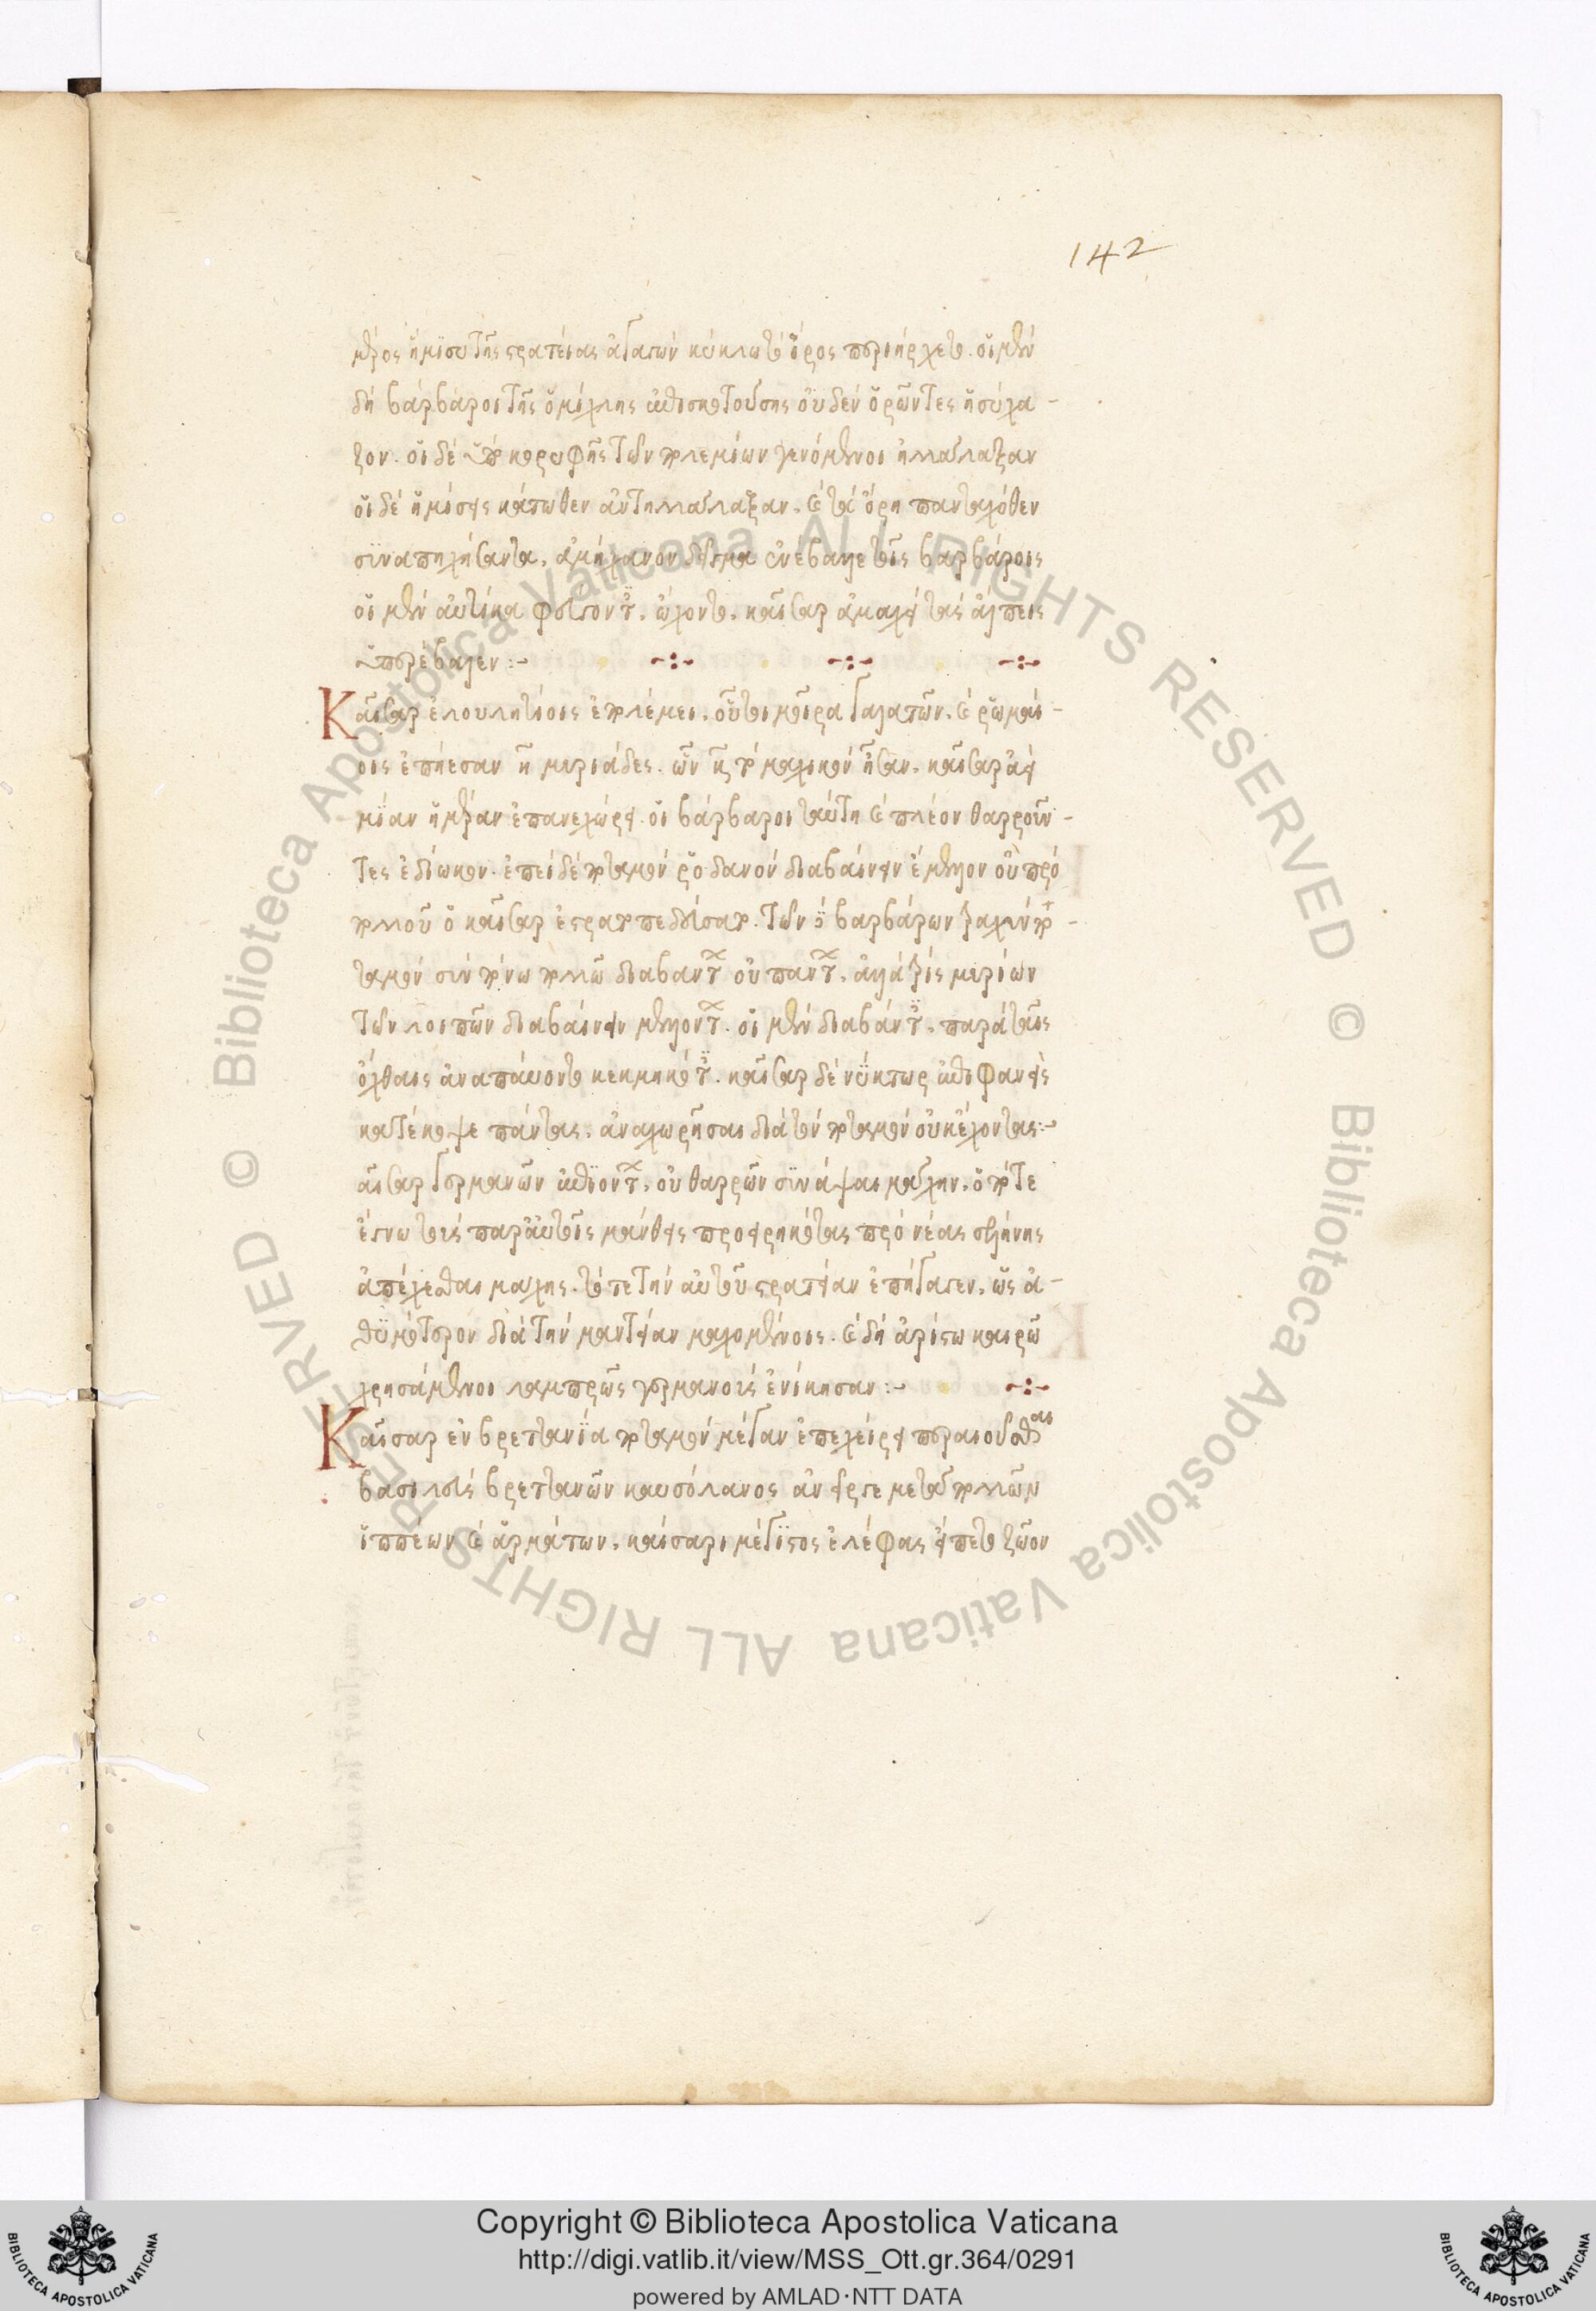 142
μέρος ἥμισυ τῆς στρατείας ἀγαγὼν κύκλω τὸ ὄρος περιήρχετο. οἱ μὲν
δὴ βάρβαροι τῆς ὁμίχλης ἐπισκοτούσης οὐδὲν ὁρῶντες ἡσύχα-
ζον. οἱ δὲ ὑπὲρ κορυφῆς τῶν πολεμίων γενόμενοι ἠλάλαξαν
οἱ δὲ ἡμίσεις κάτωθεν ἀντηλάλαξαν. καὶ τὰ ὄρη πανταχόθεν
συναπηχήσαντα, ἀμήχανον δεῖμα ἐνέβαλλε τοῖς βαρβάροις
οἱ μὲν αὐτίκα φεύγοντες, ὤχοντο. καῖσαρ ἀμαχεὶ τὰς ἄλπεις
ὑπερέβαλεν :-
Καῖσαρ ἐλουητίοις ἐπολέμει. οὗτοι μοῖρα γαλατῶν. καὶ ῥωμαί-
οις ἐπήεσαν λ̅ μυριάδες. ὧν κ̅ τὸ μαχικὸν ἦσαν. καῖσαρ ἀεὶ
μίαν ἡμέραν ἐπανεχώρει. οἱ βάρβαροι ταύτη καὶ πλέον θαρροῦν-
τες ἐδίωκον. ἐπεὶ δὲ ποταμὸν ῥοδανὸν διαβαίνειν ἔμελλον οὐ πρὸ
πολλοῦ ὁ καῖσαρ ἐστρατοπεδεύσατο. τῶν δὲ βαρβάρων τραχὺν πο-
ταμὸν σὺν πόνω πολλῶ διαβάντων οὐ πάντων, ἀλλὰ τρὶς μυρίων
τῶν λοιπῶν διαβαίνειν μελλόντων. οἱ μὲν διαβάντες, παρὰ ταῖς
ὄχθαις ἀναπαύοντο κεκμηκότες. καῖσαρ δὲ νύκτωρ ἐπιφανεὶς
κατέκοψε πάντας, ἀναχωρῆσαι διὰ τὸν ποταμὸν οὐκ ἔχοντας:-
αῖσαρ γερμανῶν ἐπιόντων, οὐ θαρρῶν συνάψαι μάχην, ὅτοτε
ἔγνω τοὺς παρ' αὐτοῖς μάντεις προειρηκότας πρὸ νέας σελήνης
ἀπέχεσθαι μάχης. τότε τὴν αὐτοῦ στρατείαν ἐπήγαγεν, ὡς ἀ-
θυμότερον διὰ τὴν μαντείαν μαχομένοις. καὶ δὴ ἀρίστω καιρῶ
χρησάμενοι λαμπρῶς γερμανοὺς ἐνίκησαν :-
Καῖσαρ ἐν βρεττανία ποταμὸν μέγαν ἐπεχείρει περαιοῦσθαι
βασιλεὺς βρεττανῶν κασόλανος ἀνεῖργε μετὰ πολλῶν
ἱππέων καὶ ἁρμάτων. καίσαρι μέγιστος ἐλέφας εἵπετο ζῶον
Copyright © Biblioteca Apostolica Vaticana
http://digi.vatlib.it/view/MSS_Ott.gr.364/0291
powered by AMLAD·NTT DATA
BIBLIOTECA APOSTOLICA VATICANA
BIBLIOTECA APOSTOLICA VATICANA
© Biblioteca Apostolica Vaticana ALL RIGHTS RESERVED © Biblioteca Apostolica Vaticana ALL RIGHTS RESERVED